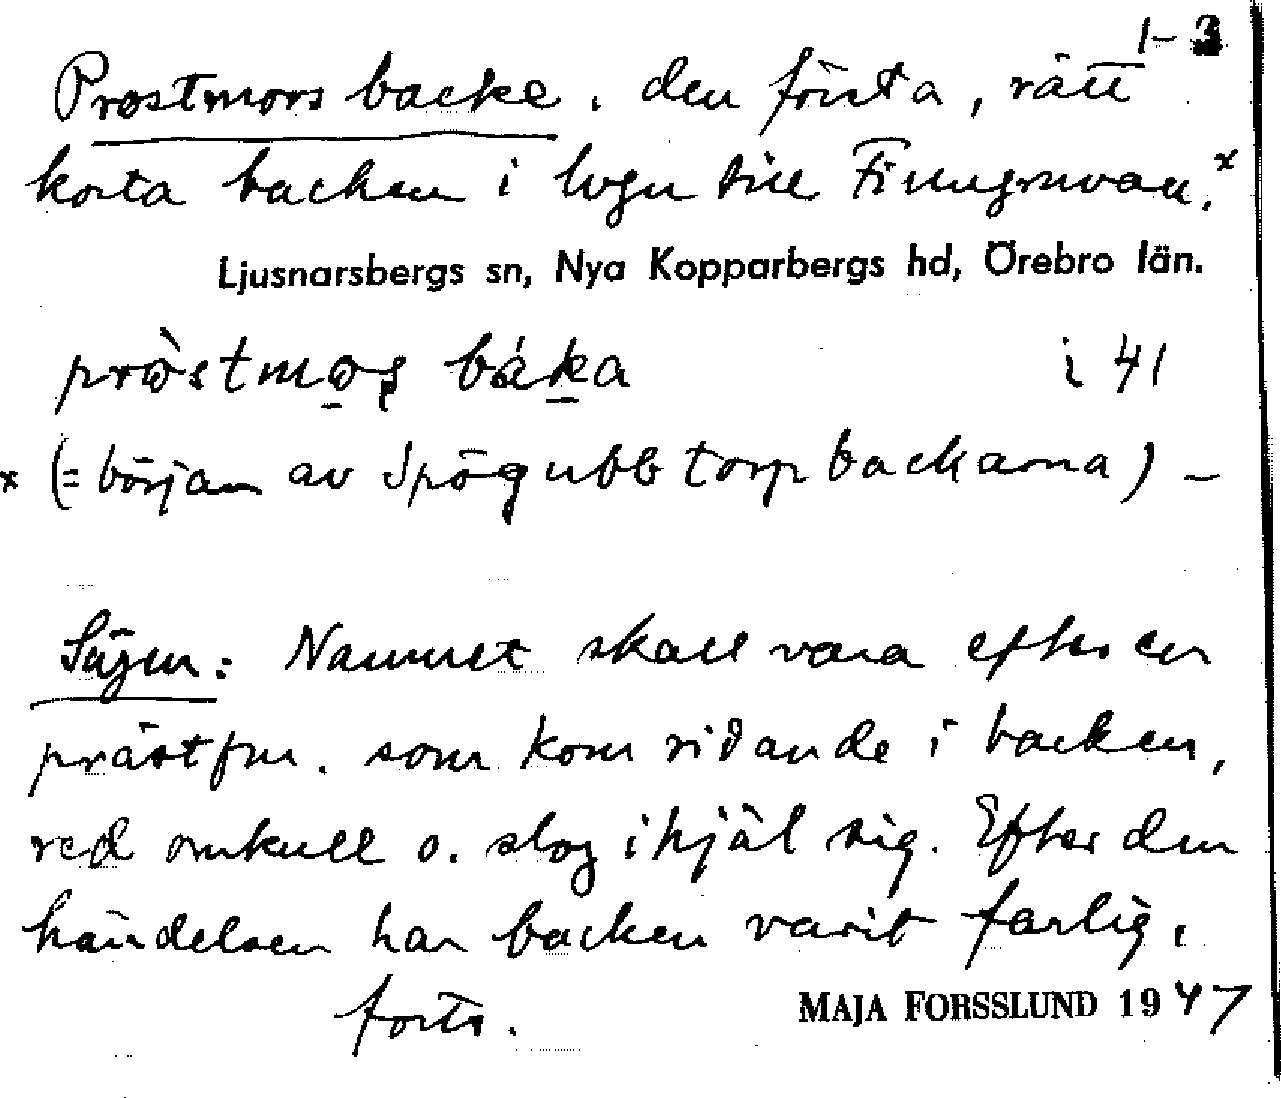 1-3
Prostmors backe. den första, rätt
korta backen i vägen till Finngruvan.x
Ljusnarsbergs sn, Nya Kopparbergs hd, Örebro län.
pròstmos báka i 41
x (= början av Spögubbtorpbackarna) –
Sägen: Namnet skall vara efter en
prästfru. som kom ridande i backen,
red omkull o. slog ihjäl sig. Efter den
händelsen har backen varit farlig.
forts.
MAJA FORSSLUND 1947